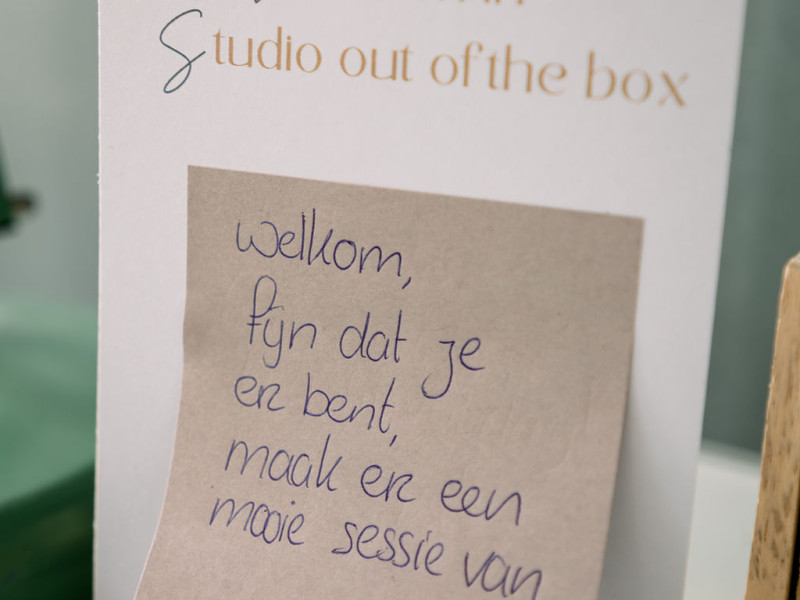 Studio out of the box
welkom,
fijn dat je
er bent,
maak er een
mooie sessie van